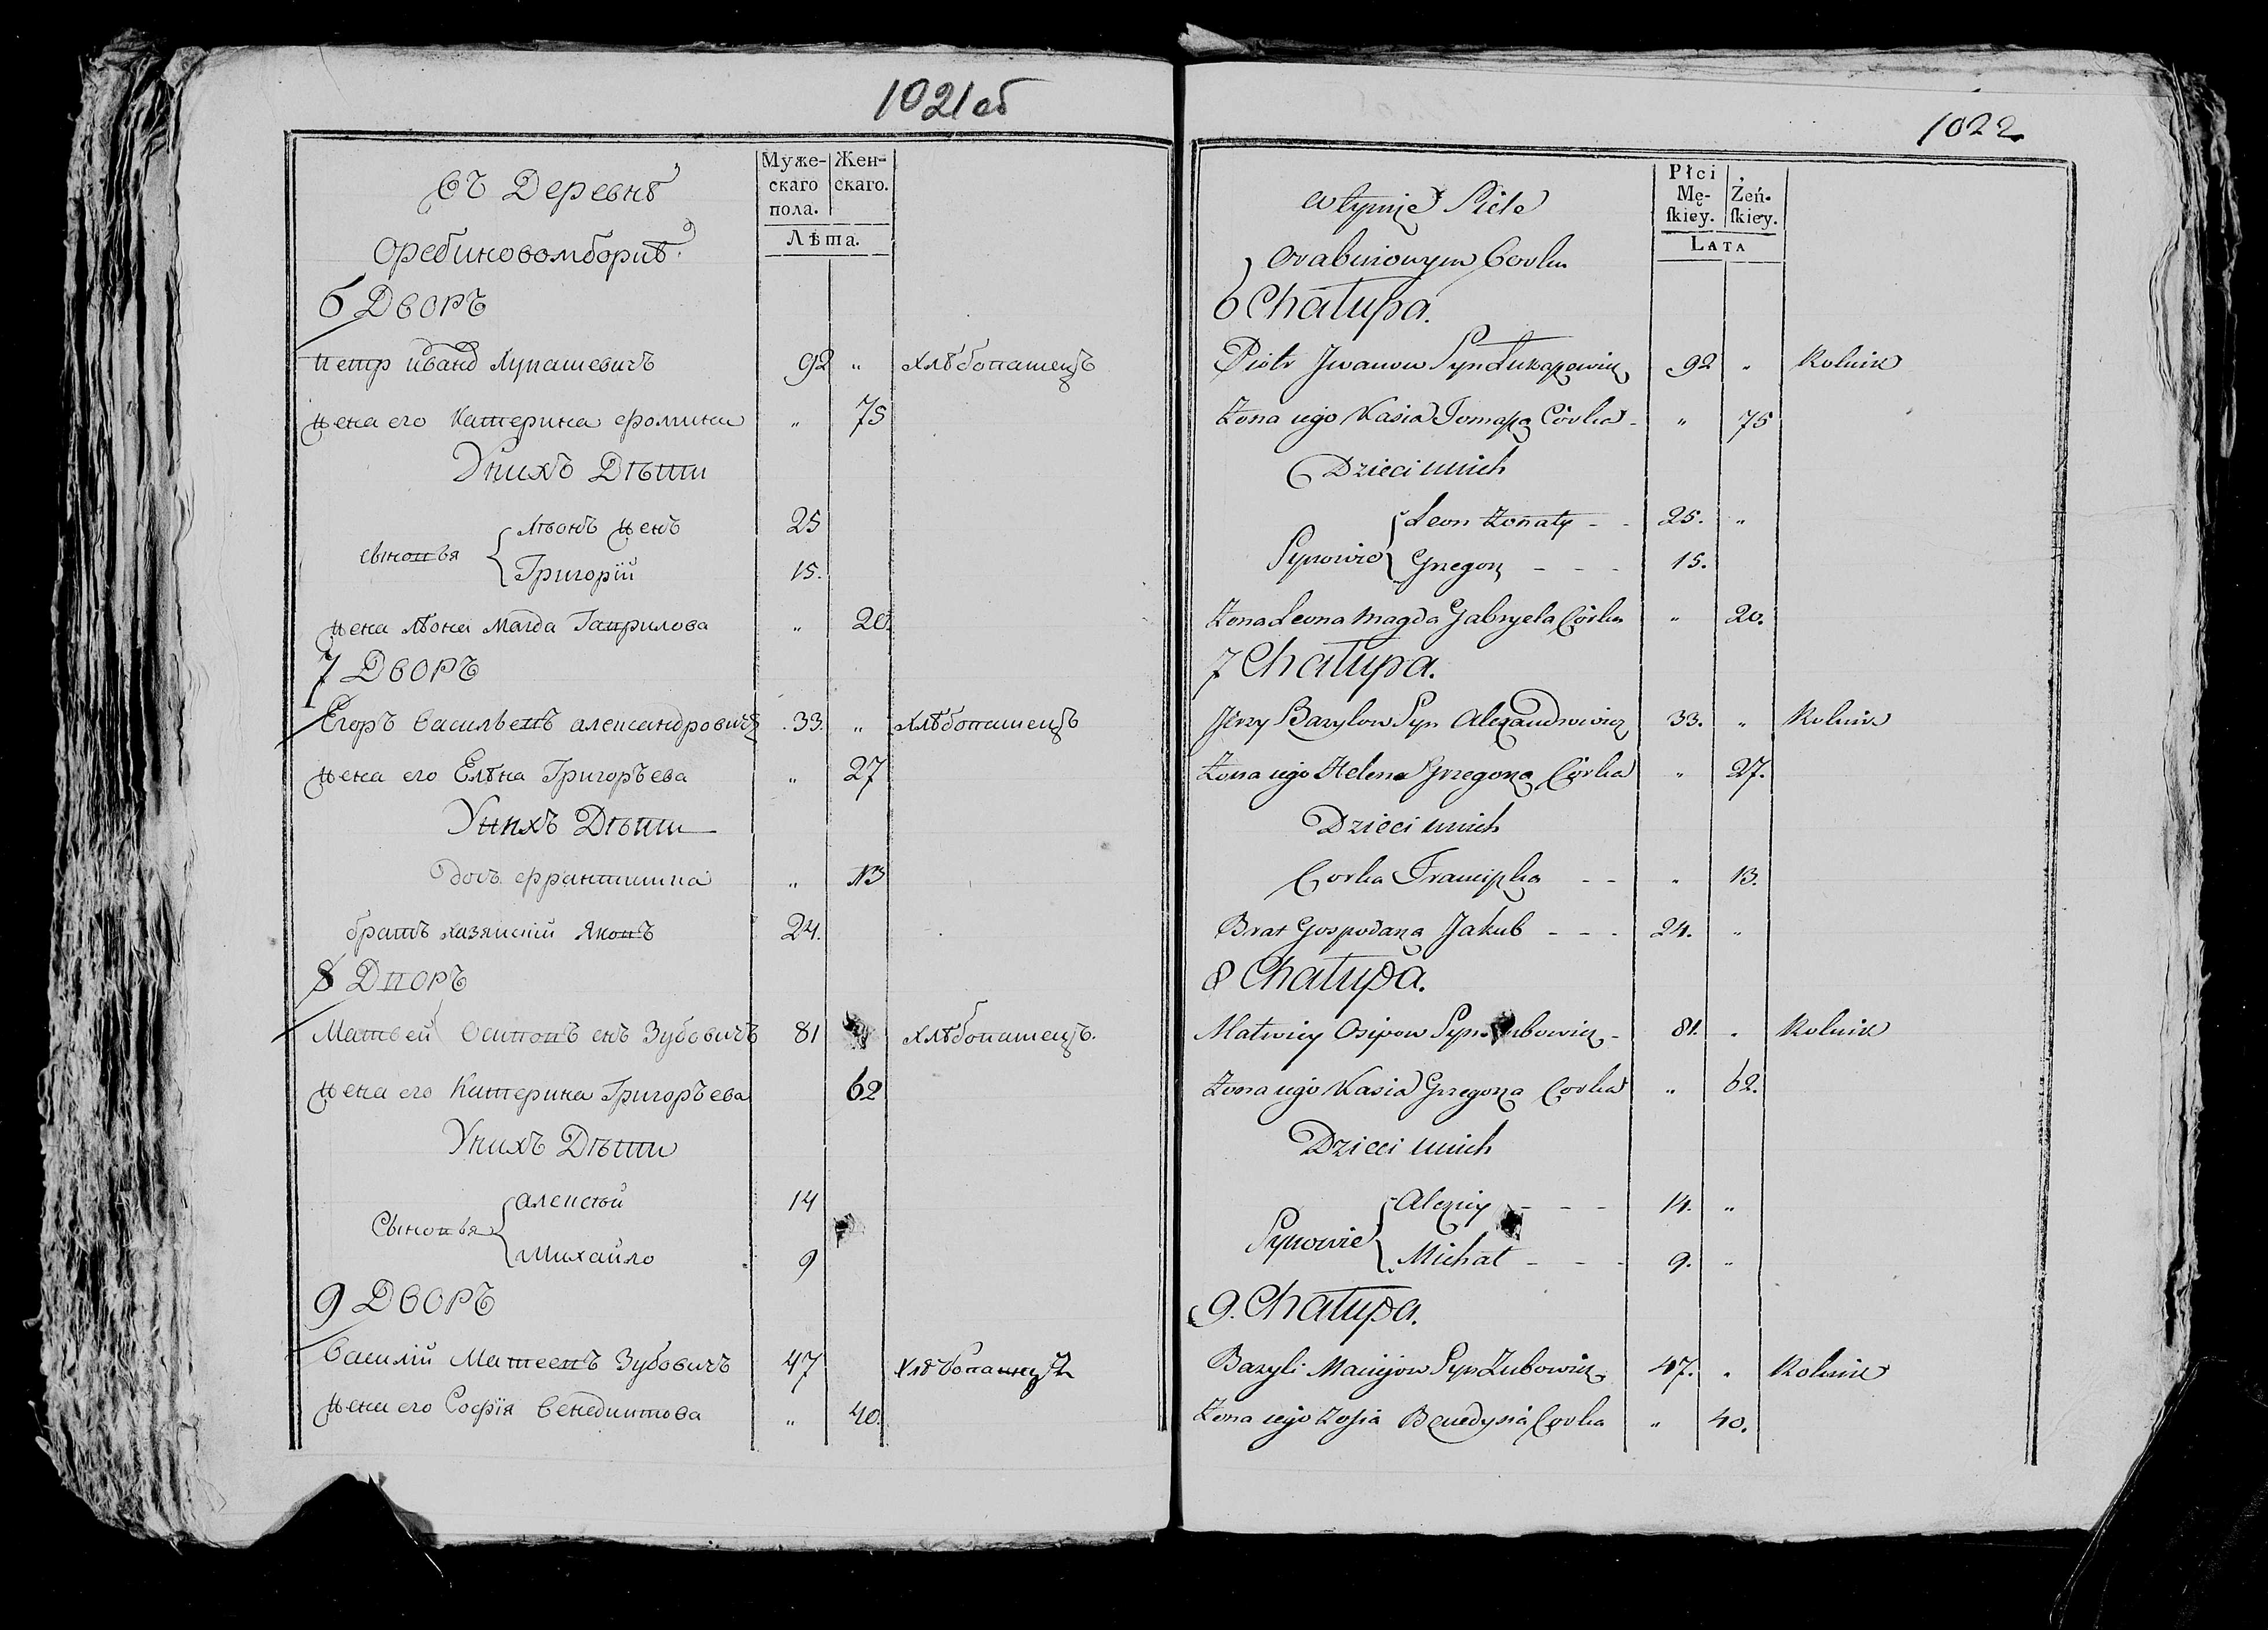 1021об
Муже- Жен-
скаго скаго.
пола.
Лѣта.
въ Деревнѣ
оребиновомборив
6 Дворъ
петр иванов Лукашевичъ 92 „ хлѣбопашецъ
жена его Катерина фомина „ 75
Унихъ Дѣти
сыновья
Лѣонъ жен 25
Григорій 15.
жена лѣона Магда Гаврилова „ 20.
7 Дворъ
Егоръ васильевъ александровичъ 33. „ хлѣбопашецъ
жена его Елѣна Григоръева „ 27
Унихъ Дѣти
дочь франтишка „ 13
братъ хазяискій Яковъ 24.
8 Дворъ
Матвей Осиповъ снъ Зубовичъ 81 хлѣбопашецъ.
жена его Катерина Григоръева 62
Унихъ Дѣти
Сыновья
алексѣй 14
Михайло 9
9 Дворъ
Василій Матвеевъ Зубовичъ 47 хлѣбопашецъ
жена его Софія венедиктова „ 40.
1022
Płci
Mę- Żeń-
ſkiey. ſkiey.
LATA
wtymże Siele
orabinowym Borku
6 Chałupa.
Piotr Jwanow Syn Łukaszewicz 92 „ Rolnik
Zona iego Kasia Tomasza Córka - „ 75
Dzieci unich
Synowie
Leon Zonaty - - 25. „
Grzegorz - - - 15.
Zona Leona Magda Gabryela Córka „ 20.
7 Chałupa.
Jerzy Bazylow Syn Alexandrowicz 33. „ Rolnik
Zona iego Helena Grzegorza Córka „ 27.
Dzieci unich
Corka Franciszka - - „ 13.
Brat Gospodarza Jakub - - - 24. „
8 Chałupa.
Matwiey Osipow Syn Zubowicz - 81. „ Rolnik
Zona iego Kasia Grzegorza Corka „ 62.
Dzieci unich
Synowie
Alexiey - - - 14. „
Michał - - - 9. „
9. Chałupa.
Bazyli Maciijow Syn Zubowicz 47. „ Rolnik
Zona iego Zofia Benedyxta Corka „ 40.